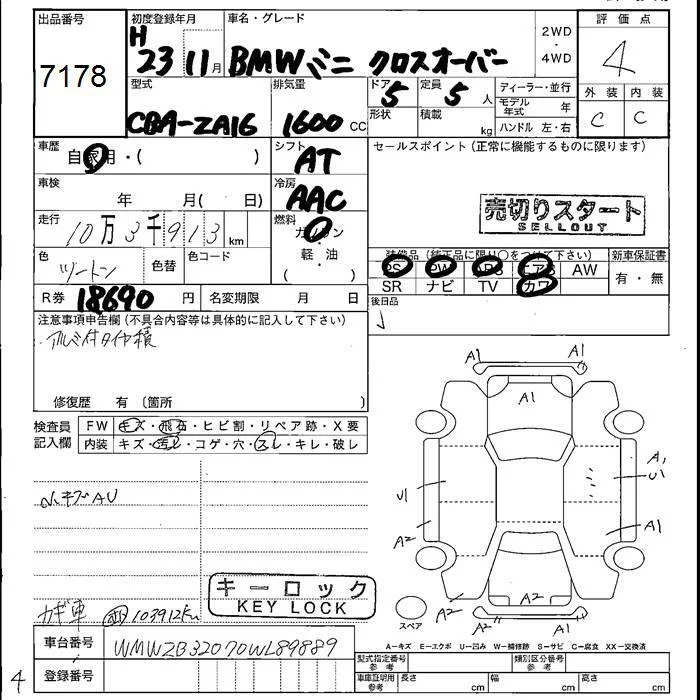 出品番号
7178
初度登録年月
H 23 11 月
車名・グレード
BMWミニ クロスオーバー
2WD
・
4WD
評価点
4
外装 内装
C C
型式
CBA-ZA16
排気量
1600 CC
ドア 5
形状
定員 5 人
積載 kg
ディーラー・並行
モデル年式 年
ハンドル 左・右
車歴
自家用・( )
シフト
AT
セールスポイント(正常に機能するものに限ります)
車検
年 月( 日)
冷房
AAC
売切りスタート
SELLOUT
走行
10万3千913 km
燃料
ガソリン
・
軽・油
( )
色
ツートン
色替
色コード
装備品(純正品に限り○をつけて下さい)
新車保証書
PS PW ABS エアB AW
SR ナビ TV カワ
有・無
R券 18690 円
名変期限 月 日
後日品
注意事項申告欄(不具合内容等は具体的に記入して下さい)
アルミ付タイヤ積
修復歴 有(箇所 )
検査員記入欄
FW キズ・飛石・ヒビ割・リペア跡・X要
内装 キズ・汚レ・コゲ・穴・スレ・キレ・破レ
小キズAU
キーロック
KEY LOCK
103912km
車台番号 WMWZB32070WL89889
登録番号
4
A1 A1
A1
U1
A2
A1
U1
A1
A2
A2
A2
A1
スペア
A－キズ E－エクボ U－凹み W－補修跡 S－サビ C－腐食 XX－交換済
型式指定番号 参考
類別区分番号 参考
車庫証明用 参考
長さ cm
幅 cm
高さ cm